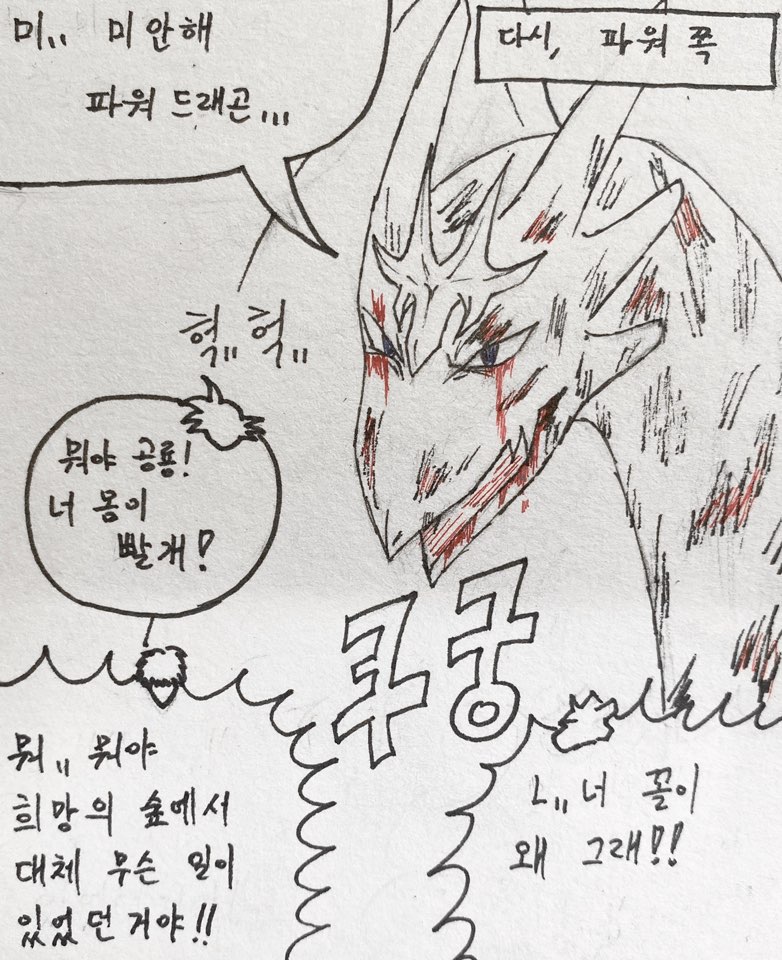 다시, 파워 쪽
미,, 미안해
파워 드래곤,,,
헉,, 헉,,
뭐야 공룡!
너 몸이
빨개!
쿠궁
뭐,, 뭐야
희망의 숲에서
대체 무슨 일이
있었던 거야!!
ㄴ,, 너 꼴이
왜 그래!!